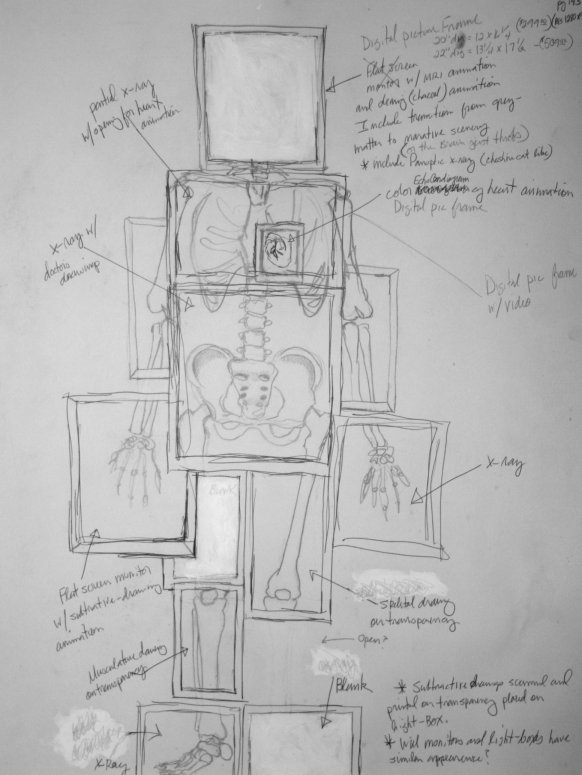 Digital picture Frame
20" dig = 12 x
22" dig = 13 1/4 x 17 1/2
Flat screen
monitor w/ MRI animation
and drawing (chacoal) animation
Include transition from grey-
matter to narative scenery
* include Panoptic x-ray
partial x-ray
w/ opening for heart
animation
Echocardiogram
color of heart animation
Digital pic frame
x-ray w/
doctors
drawing
Digital pic frame
w/ video
X-ray
Blank
Flat screen monitor
w/ subtractive-drawing
animation
Skeletal drawing
on transparency
← Open? →
Musculature drawing
on transparency
Blank
X-Ray
* Subtractive drawings scanned and
printed on transparency placed on
light-box.
* Will monitors and light-boxes have
similar appearence?